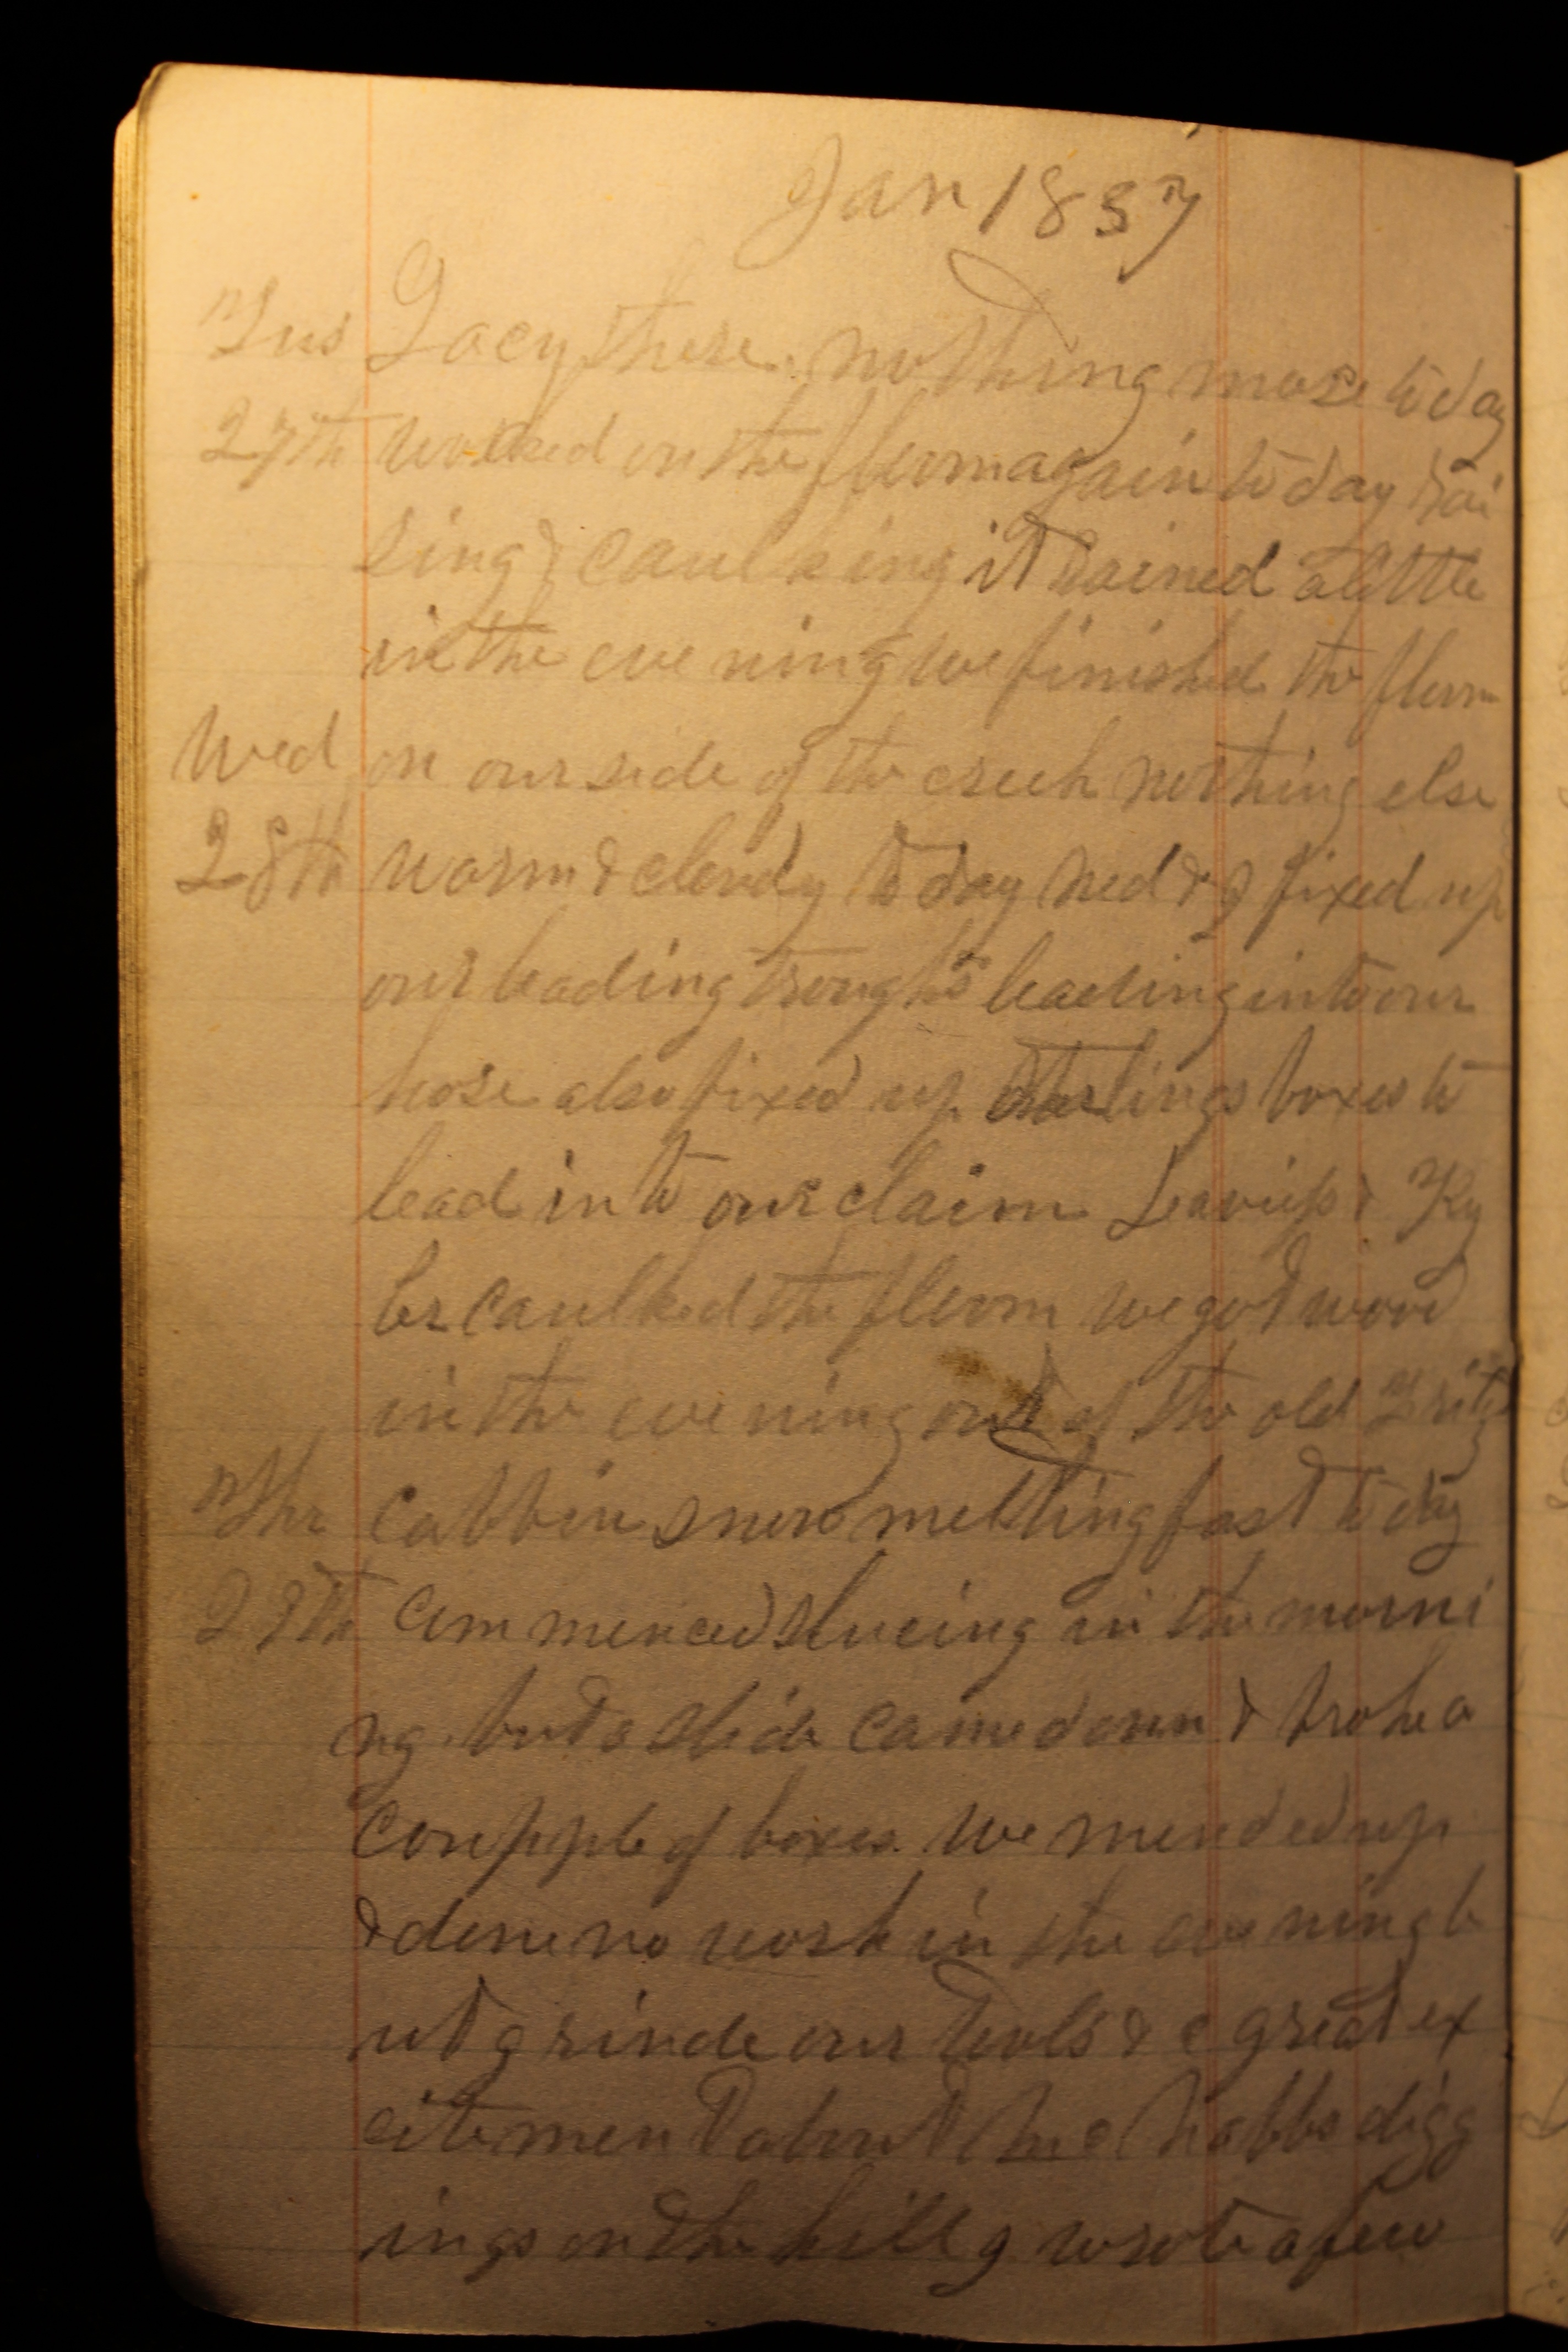 Jan 1857
Tus Lacy there. nothing more to day
27th worked on the flewm again to day rai
sing & caulking it rained a little
in the evening we finished the flewm
Wed on our side of the creek nothing else
28th warm & cloudy to day Ned & I fixed up
our leading troughs leading into our
hose also fixed up boxes to
lead in to our claim & Ky
ber caulked the flewm we got wood
in the evening out of the old Fritz
Thr cabbin snow meltting fast to day
29th commenced sluceing in the morni
ng but a slide came down & broke a
coupple of boxes. We mended up
& done no work in the evening b
ut grinde our tools & c great ex
citement about the Nabbs digg
ings on the hill I wrote a few